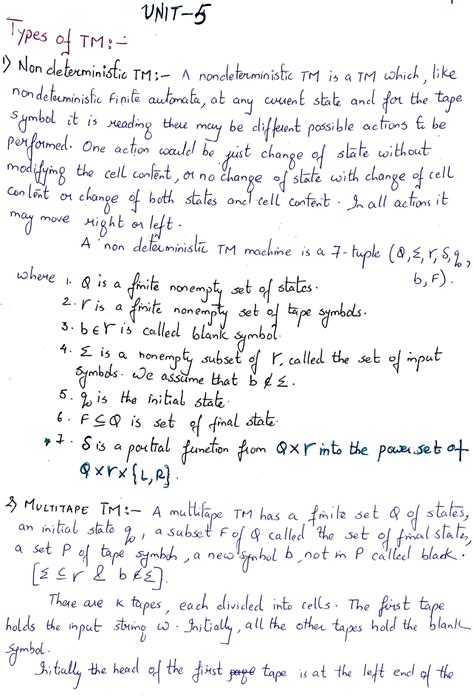 UNIT-5
Types of TM:-
1) Non deterministic TM:- A nondeterministic TM is a TM which, like
nondeterministic finite automata, at any current state and for the tape
symbol it is reading there may be different possible actions to be
performed. One action could be just change of state without
modifying the cell content, or no change of state with change of cell
content or change of both states and cell content. In all actions it
may move right or left.
A non deterministic TM machine is a 7-tuple (Q, Σ, Γ, δ, q₀,
b, F).
where 1. Q is a finite nonempty set of states.
2. Γ is a finite nonempty set of tape symbols.
3. b ∈ Γ is called blank symbol.
4. Σ is a nonempty subset of Γ, called the set of input
symbols. We assume that b ∉ Σ.
5. q₀ is the initial state
6. F ⊆ Q is set of final state.
*7. δ is a partial function from Q×Γ into the power set of
Q×Γ×{L,R}.
2) MULTITAPE TM:- A multitape TM has a finite set Q of states,
an initial state q₀, a subset F of Q called the set of final states,
a set P of tape symbols, a new symbol b, not in P called black.
[Σ ⊆ Γ & b ∉ Σ].
There are K tapes, each divided into cells. The first tape
holds the input string w. Initially, all the other tapes hold the blank
symbol.
Initially the head of the first tape is at the left end of the